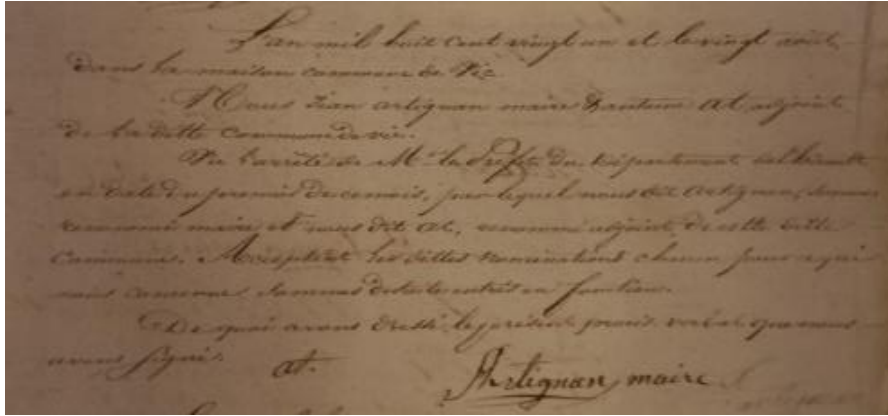 L'an mil huit cent vingt un et le vingt août
dans la maison commune de Vic
Nous Jean artignan maire antoine At, adjoint
de la ditte commune de vic.
Vu l'arrêté de Mr le Préfet du Département de l'hérault
en date du premier de ce mois, par lequel nous dit Artignan, sommes
renommé maire et nous dit At, renommé adjoint de cette ditte
Commune. Acceptant les dittes nominations chacun pour ce qui
nous concerne, sommes de suite entrés en fonction.
De quoi avons dressé le présent procès verbal que nous
avons signé.
at. Artignan maire